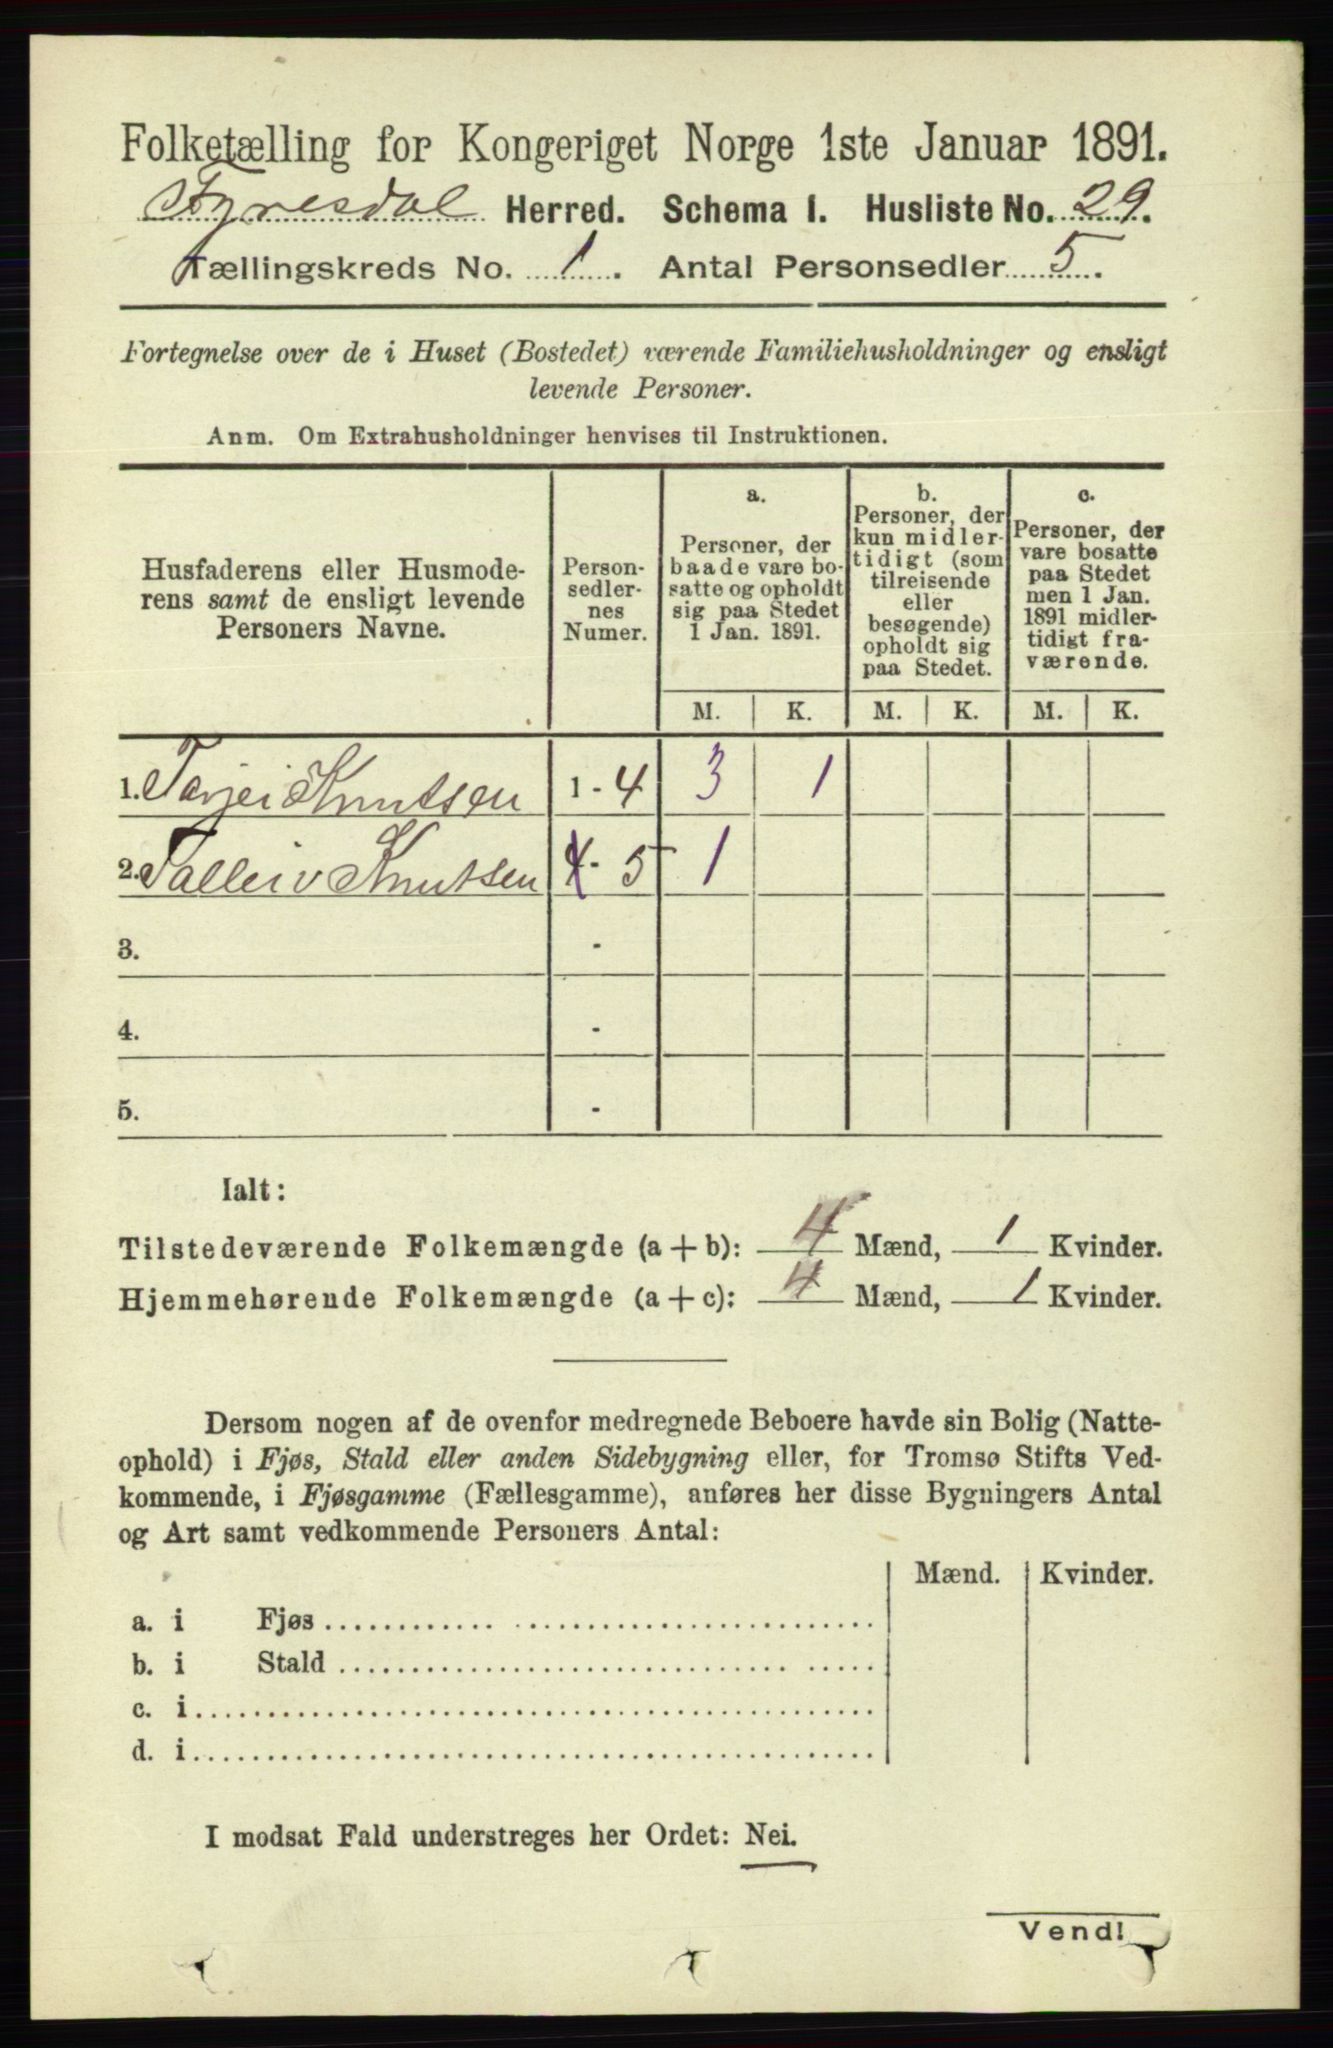 Folketælling for Kongeriget Norge 1ste Januar 1891.
Fyresdal Herred. Schema I. Husliste No. 29.
Tællingskreds No. 1. Antal Personsedler 5.
Fortegnelse over de i Huset (Bostedet) værende Familiehusholdninger og ensligt
levende Personer.
Anm. Om Extrahusholdninger henvises til Instruktionen.
Husfaderens eller Husmode-
rens samt de ensligt levende
Personers Navne.
Person-
sedler-
nes
Numer.
a.
Personer, der
baade vare bo-
satte og opholdt
sig paa Stedet
1 Jan. 1891.
b.
Personer, der
kun midler-
tidigt (som
tilreisende
eller
besøgende)
opholdt sig
paa Stedet.
c.
Personer, der
vare bosatte
paa Stedet
men 1 Jan.
1891 midler-
tidigt fra-
værende.
M. K. M. K. M. K.
1. Tarjei Knutsen 1 - 4 3 1
2. Talleiv Knutsen - 5 1
3. -
4. -
5. -
Ialt:
Tilstedeværende Folkemængde (a + b): 4 Mænd, 1 Kvinder.
Hjemmehørende Folkemængde (a + c): 4 Mænd, 1 Kvinder.
Dersom nogen af de ovenfor medregnede Beboere havde sin Bolig (Natte-
ophold) i Fjøs, Stald eller anden Sidebygning eller, for Tromsø Stifts Ved-
kommende, i Fjøsgamme (Fællesgamme), anføres her disse Bygningers Antal
og Art samt vedkommende Personers Antal:
Mænd. Kvinder.
a. i Fjøs
b. i Stald
c. i
d. i
I modsat Fald understreges her Ordet: Nei.
Vend!